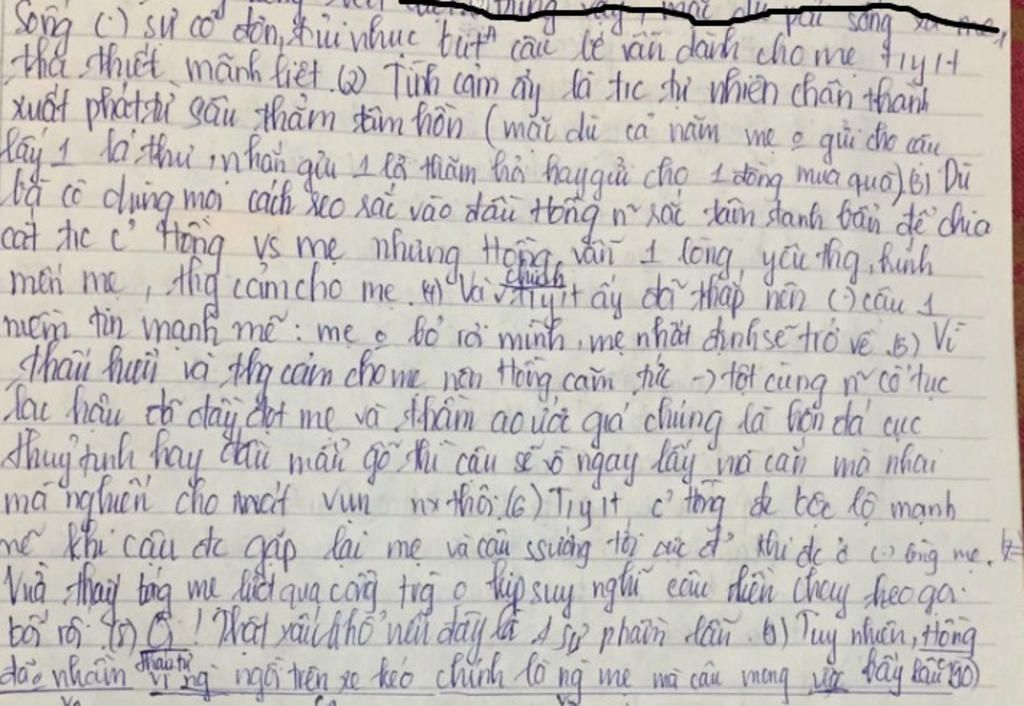 sống (.) sự cô đơn, tủi nhục but cậu bé vẫn dành cho mẹ t1y1t
tha thiết mãnh liệt. (2) Tình cảm ấy là t/c tự nhiên chân thành
xuất phát từ sâu thẳm tâm hồn (mặc dù cả năm mẹ o gửi cho cậu
lấy 1 lá thư, nhắn gửi 1 lời thăm hỏi hay gửi cho 1 đồng mua quà) (3) Dù
bà cô dùng mọi cách reo rắc vào đầu Hồng n~ rắc tâm tanh bẩn để chia
cắt t/c c' Hồng vs mẹ nhưng Hồng vẫn 1 lòng yêu thg, kính
mến mẹ, thg cảm cho mẹ. (4) Và chính t1y1t ấy đã thắp nên (.) cậu 1
niềm tin mạnh mẽ: mẹ o bỏ rơi mình, mẹ nhất định sẽ trở về. (5) Vì
thấu hiểu và thg cảm cho mẹ nên Hồng căm tức -> tột cùng n~ cổ tục
lạc hậu đã đày đọt mẹ và thầm ao ước giá chúng là hòn đá cục
thuỷ tinh hay đầu mẩu gỗ thì cậu sẽ vồ ngay lấy mà cắn mà nhai
mà nghiến cho nát vụn mới thôi. (6) T1y1t c' Hồng đc bộc lộ mạnh
mẽ khi cậu đc gặp lại mẹ và cậu ssướng tới cực đ' khi đc ở (.) lòng mẹ. (7)
Vừa thấy bóng mẹ lướt qua cổng trg o kịp suy nghĩ cậu liền chạy theo gọi
bối rối. (8) Ô! Thật xấu hổ nếu đây là 1 sự nhầm lẫn. (9) Tuy nhiên, Hồng
đã o nhầm ng ngồi trên xe kéo chính là ng mẹ mà cậu mong bấy lâu (10)